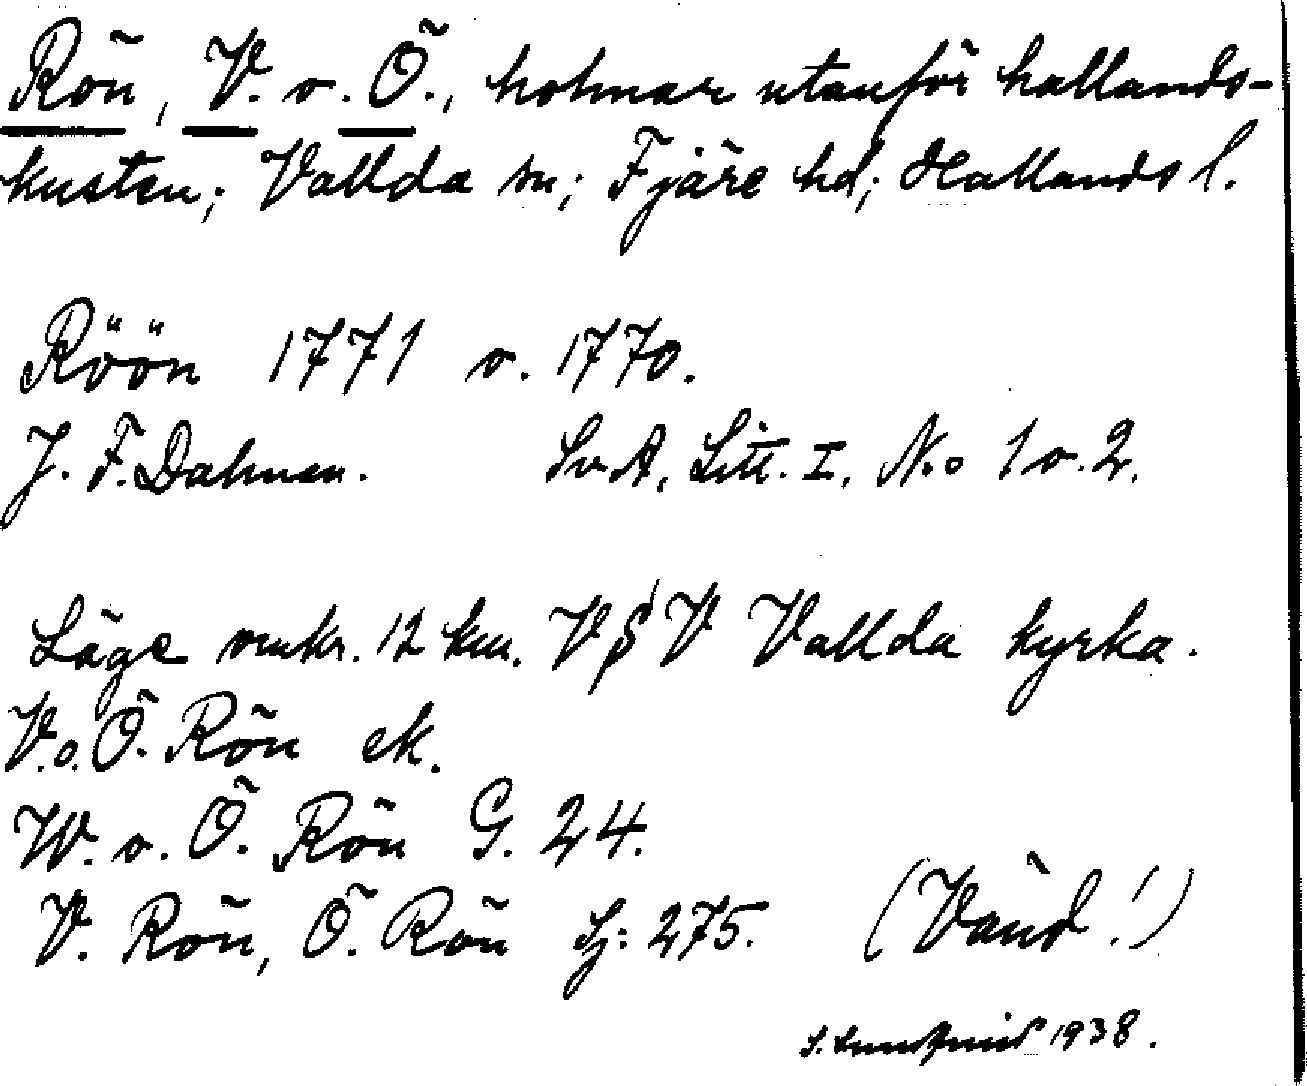 Rön, V. o. Ö., holmar utanför hallands-
kusten; Vallda sn; Fjäre hd; Hallands l.
Röön 1771 o. 1770.
J. F. Dalman. Sv.A, Litt. I, No 1 o. 2.
Läge omkr. 12 km. V Vallda kyrka.
V. o. Ö. Rön ek.
W. o. Ö. Rön G. 24.
V. Rön, Ö. Rön Sj: 275. (Vänd!)
1938.